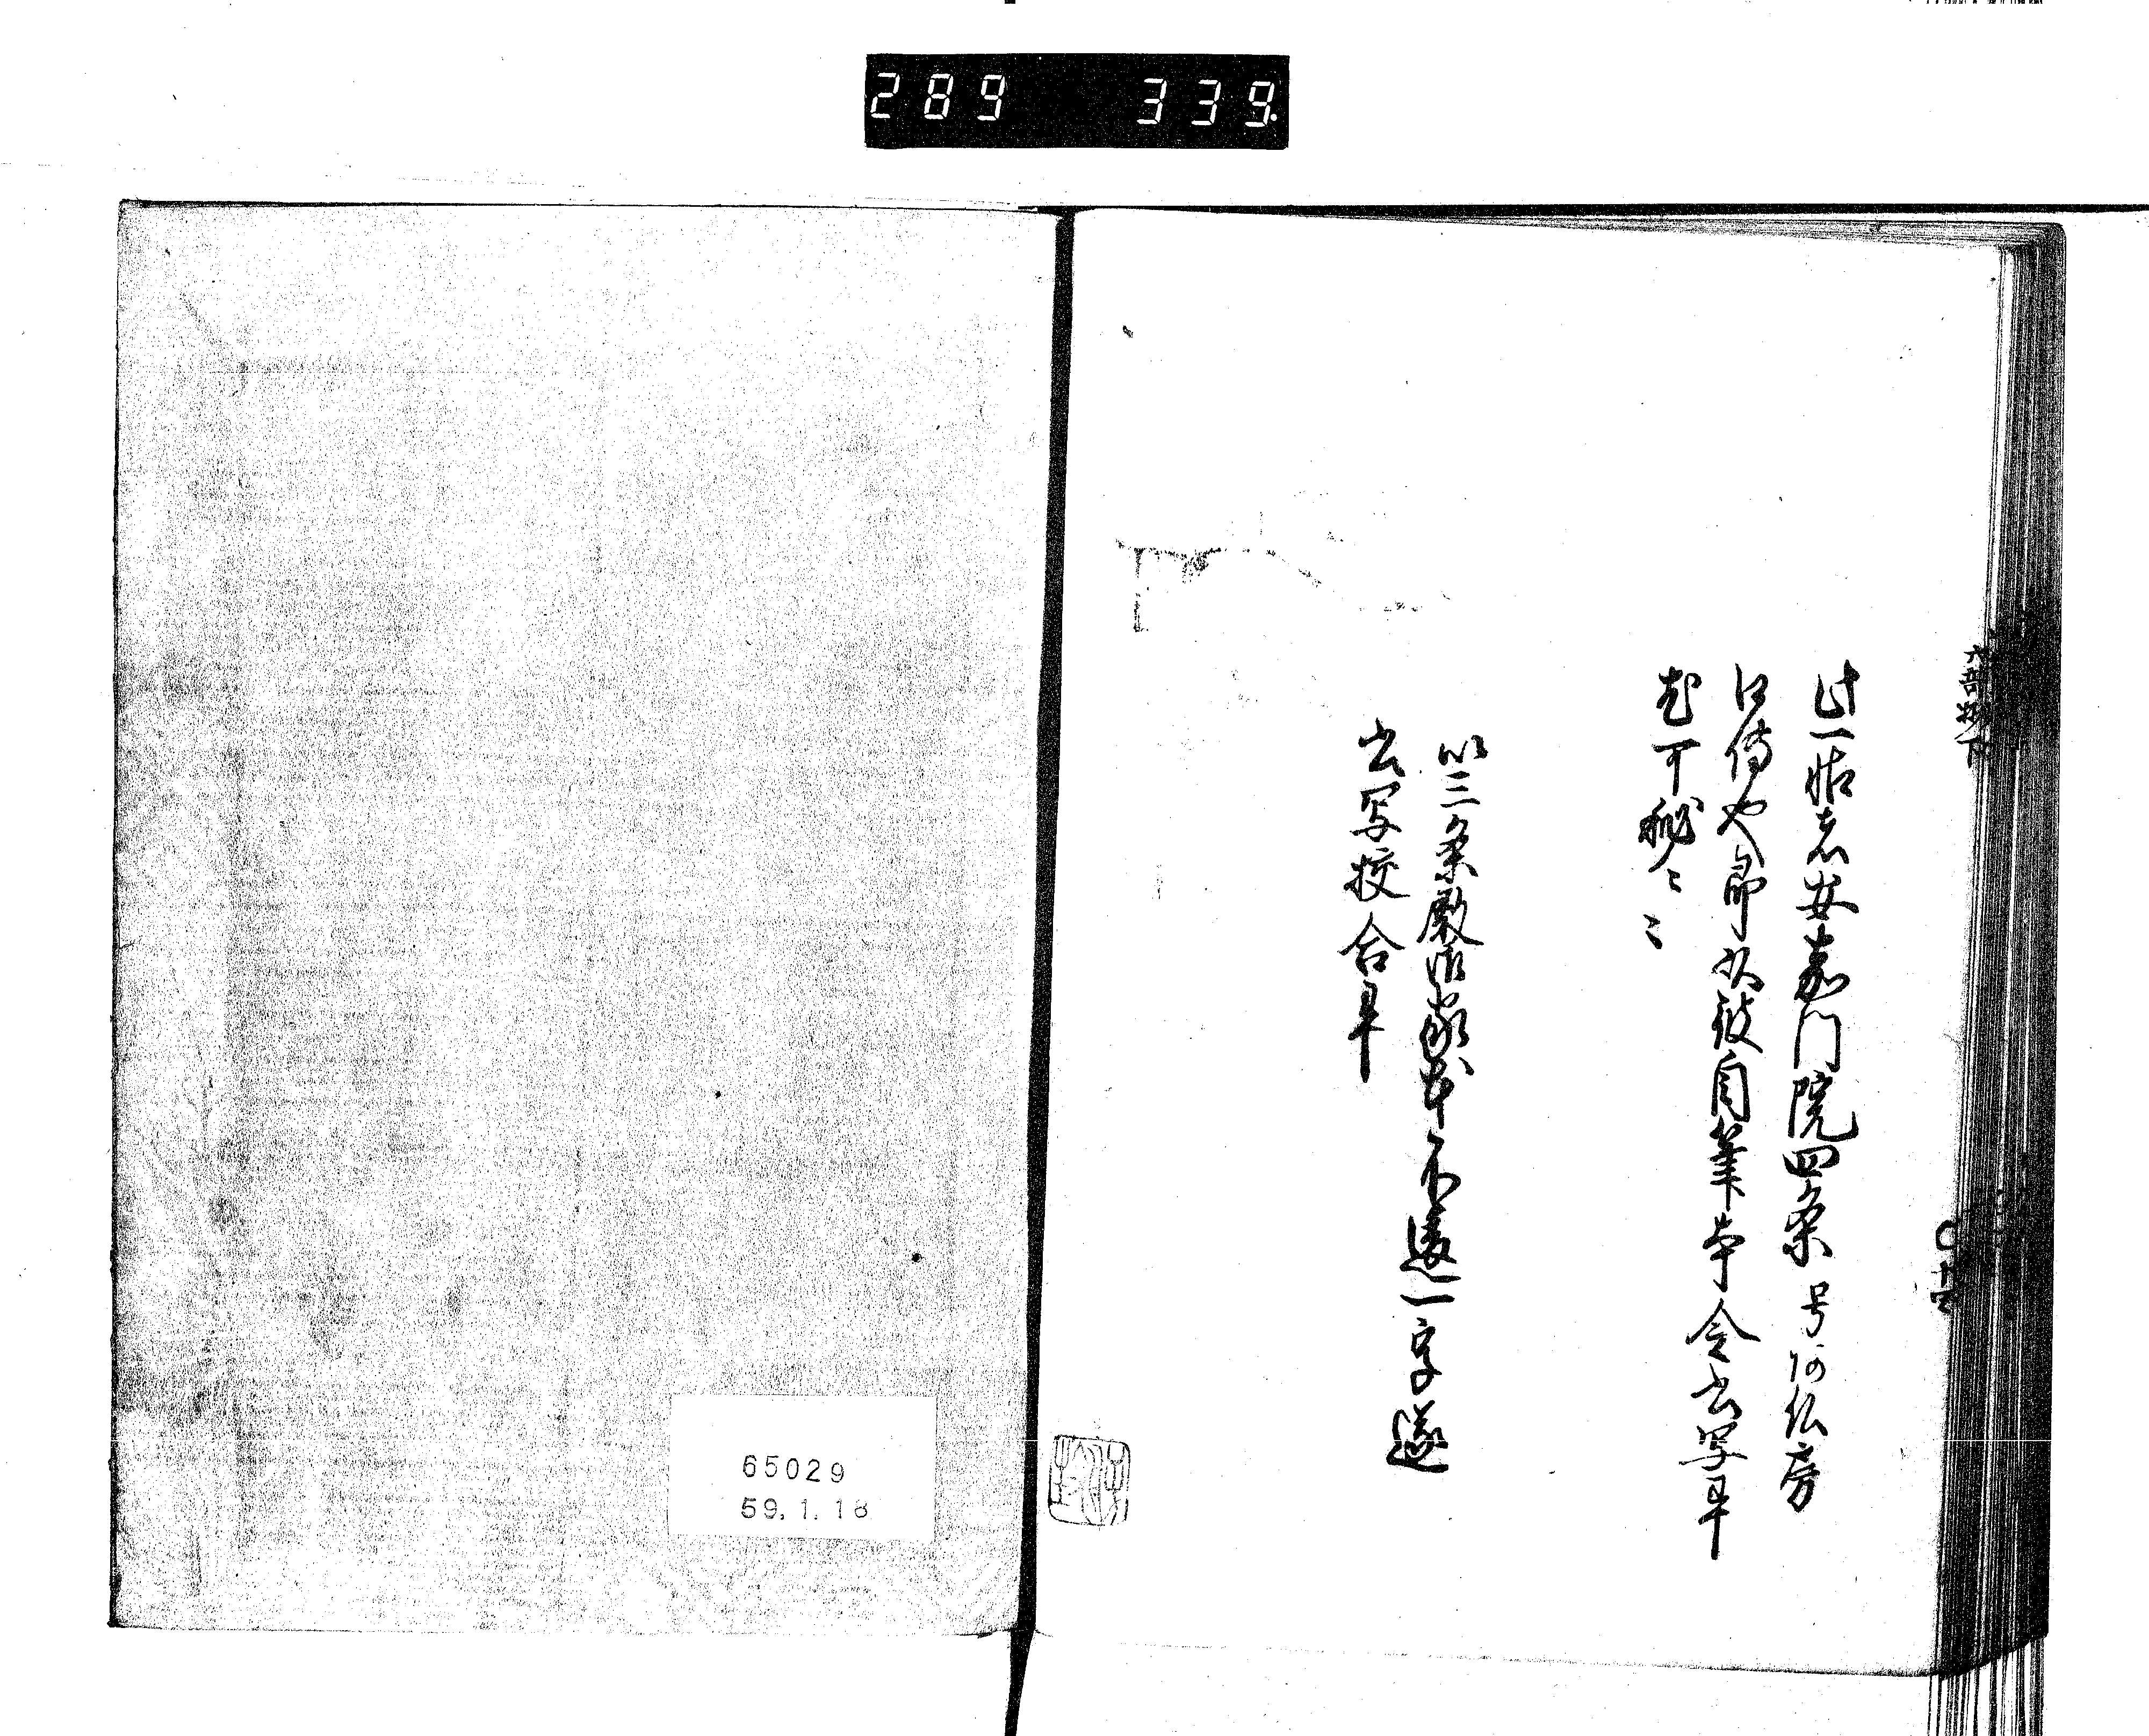 289 339
此一帖者安嘉門院四条号阿仏房
口伝也即以彼自筆本令書写畢
尤可秘々々
以三条殿御家本不違一字遂
書写校合畢
65029
59.1.18